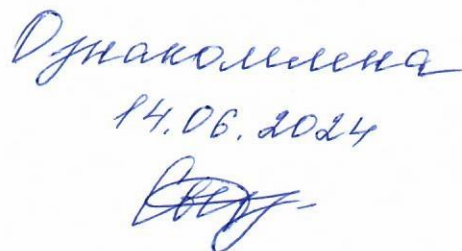 Ознакомлена
14.06.2024